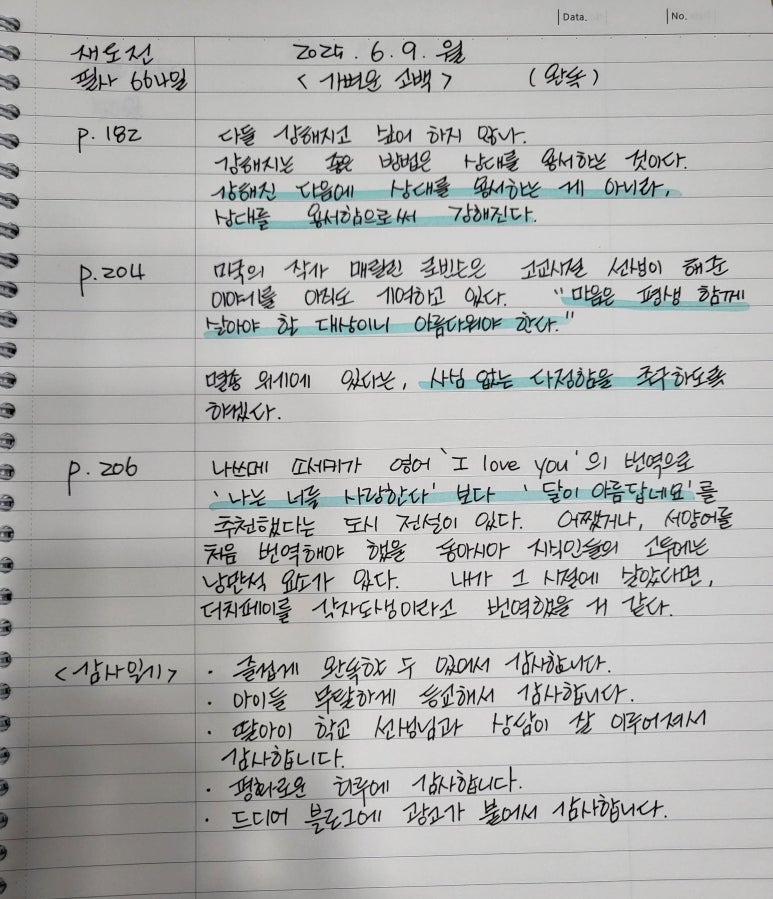 Data. No.
새도전 2025. 6. 9. 월
필사 66일 <가벼운 고백> (완독)
p. 182 다들 강해지고 싶어 하지 않나.
강해지는 좋은 방법은 상대를 용서하는 것이다.
강해진 다음에 상대를 용서하는 게 아니라,
상대를 용서함으로써 강해진다.
p. 204 미국의 작가 매릴린 로빈슨은 고교시절 선생이 해준
이야기를 아직도 기억하고 있다. "마음은 평생 함께
살아야 할 대상이니 아름다워야 한다."
멸종 위기에 있다는, 사심 없는 다정함을 추구하도록
하겠다.
p. 206 나쓰메 소세키가 영어 'I love you'의 번역으로
'나는 너를 사랑한다' 보다 '달이 아름답네요'를
추천했다는 도시 전설이 있다. 어쨌거나, 서양어를
처음 번역해야 했을 동아시아 지식인들의 고투에는
낭만적 요소가 있다. 내가 그 시절에 살았다면,
더치페이를 각자도생이라고 번역했을 거 같다.
<감사일기> · 즐겁게 완독할 수 있어서 감사합니다.
· 아이들 무탈하게 등교해서 감사합니다.
· 딸아이 학교 선생님과 상담이 잘 이루어져서
감사합니다.
· 평화로운 하루에 감사합니다.
· 드디어 블로그에 광고가 붙어서 감사합니다.